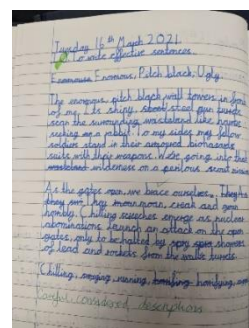 Tuesday 16th March 2021
To write effective sentences.
Enormous, Pitch black, Ugly.
The enormous, pitch black wall towers in front
of my. Its shiny, steel gun turrets
scan the surrounding wasteland like hawks
seeking a rabbit. To my sides my fellow
soldiers stand in their armoured biohazard
suits with their weapons. We're going into the
wilderness on a perilous scout mission
As the gates open, we brace ourselves.
they moan, creak and groan
horribly. Chilling screeches emerge as nuclear
abominations launch an attack on the open
gates, only to be halted by showers
of lead and rockets from the turrets
Chilling, horrifying,
Careful, considered descriptions